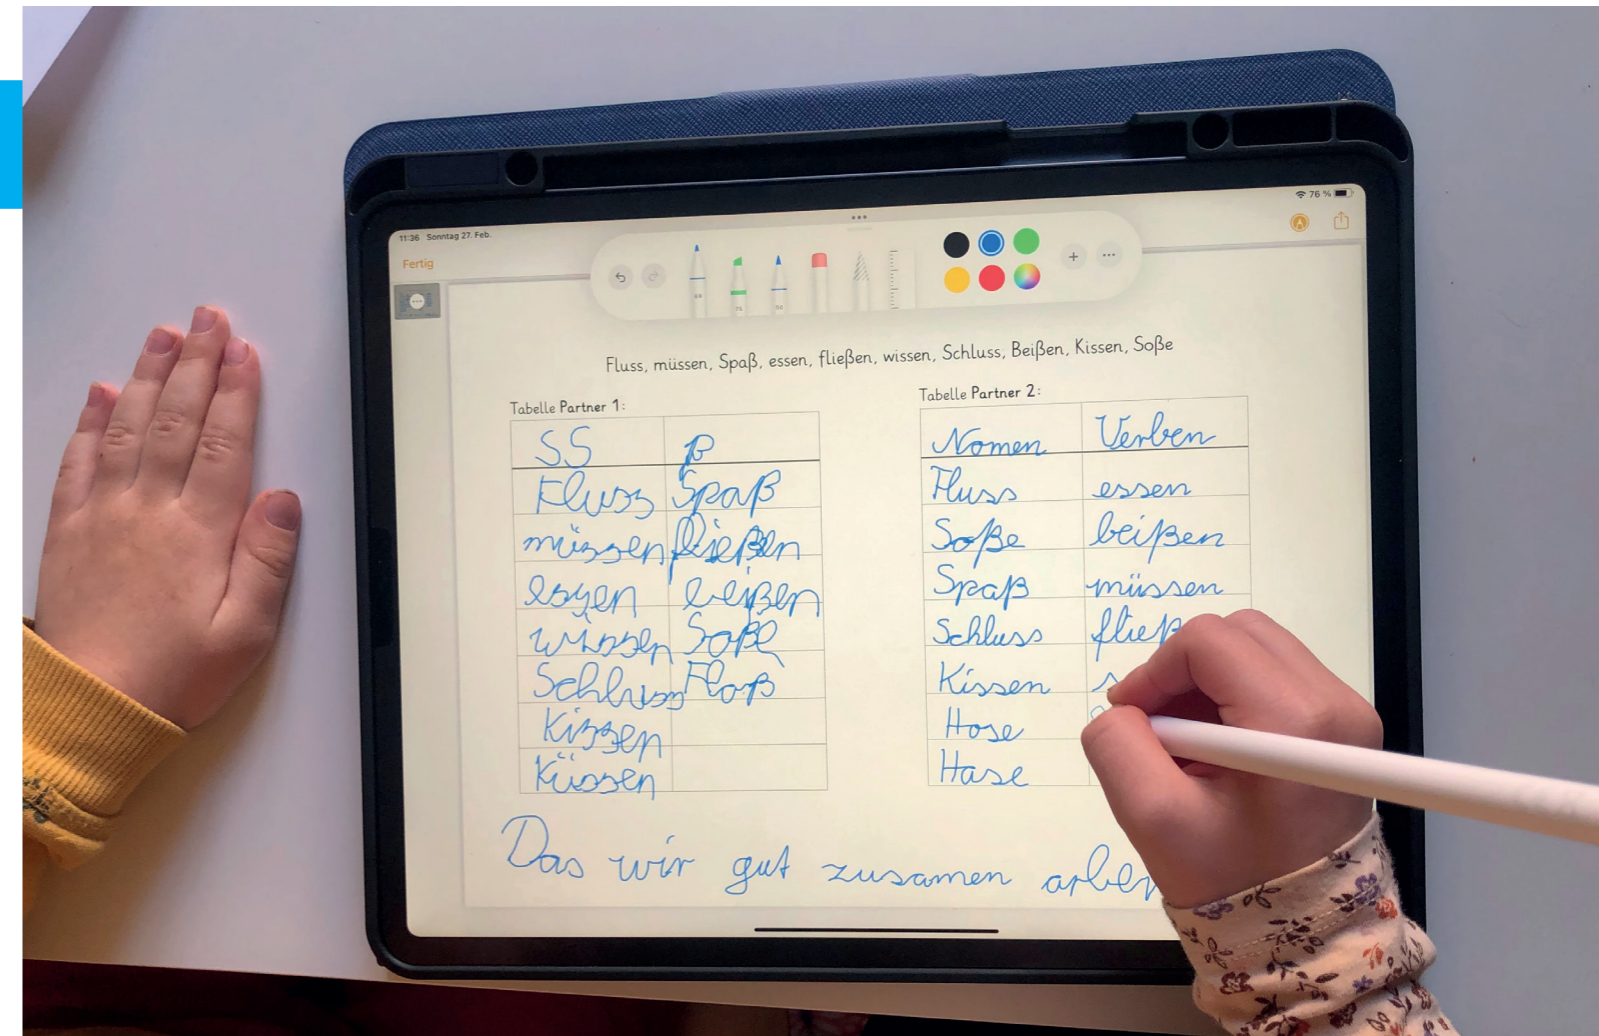 11:36 Sonntag 27. Feb.
76 %
Fertig
68
71
50
Fluss, müssen, Spaß, essen, fließen, wissen, Schluss, Beißen, Kissen, Soße
Tabelle Partner 1:
SS ß
Fluss Spaß
müssen fließen
essen beißen
wissen Soße
Schluss Floß
Kissen
Küssen
Tabelle Partner 2:
Nomen Verben
Fluss essen
Soße beißen
Spaß müssen
Schluss fließ
Kissen
Hose
Hase
Das wir gut zusamen arbei